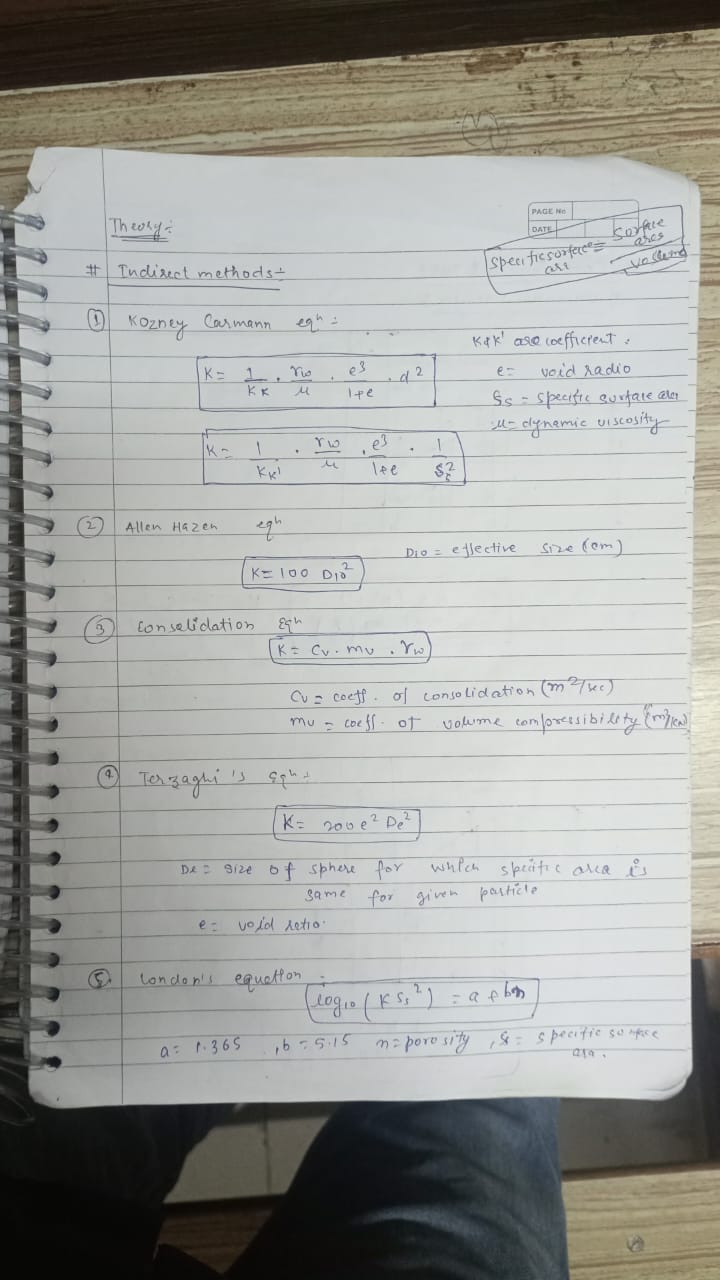 PAGE No
DATE
Theory:-
specific surface area = Surface area / volume
# Indirect methods :-
① Kozney Carmann eqn :-
K & K' are coefficient.
K = 1/KK . γw/μ . e3/1+e . d2
e = void radio
Ss = specific surface area
μ = dynamic viscosity
K = 1/KK' . γw/μ . e3/1+e . 1/Ss2
② Allen Hazen eqn
D10 = effective size (cm)
K = 100 D10²
③ Consolidation Eqn
K = Cv . mv . γw
Cv = coeff. of consolidation (m2/sec)
mv = coeff. of volume compressibility (m2/kN)
④ Terzaghi's Eqn :-
K = 200 e² De²
De = size of sphere for which specific area is
same for given particle
e = void ratio.
⑤ London's equation :-
log10 (K Ss²) = a + bn
a = 1.365 , b = 5.15 n = porosity , Ss = specific surface
ara.